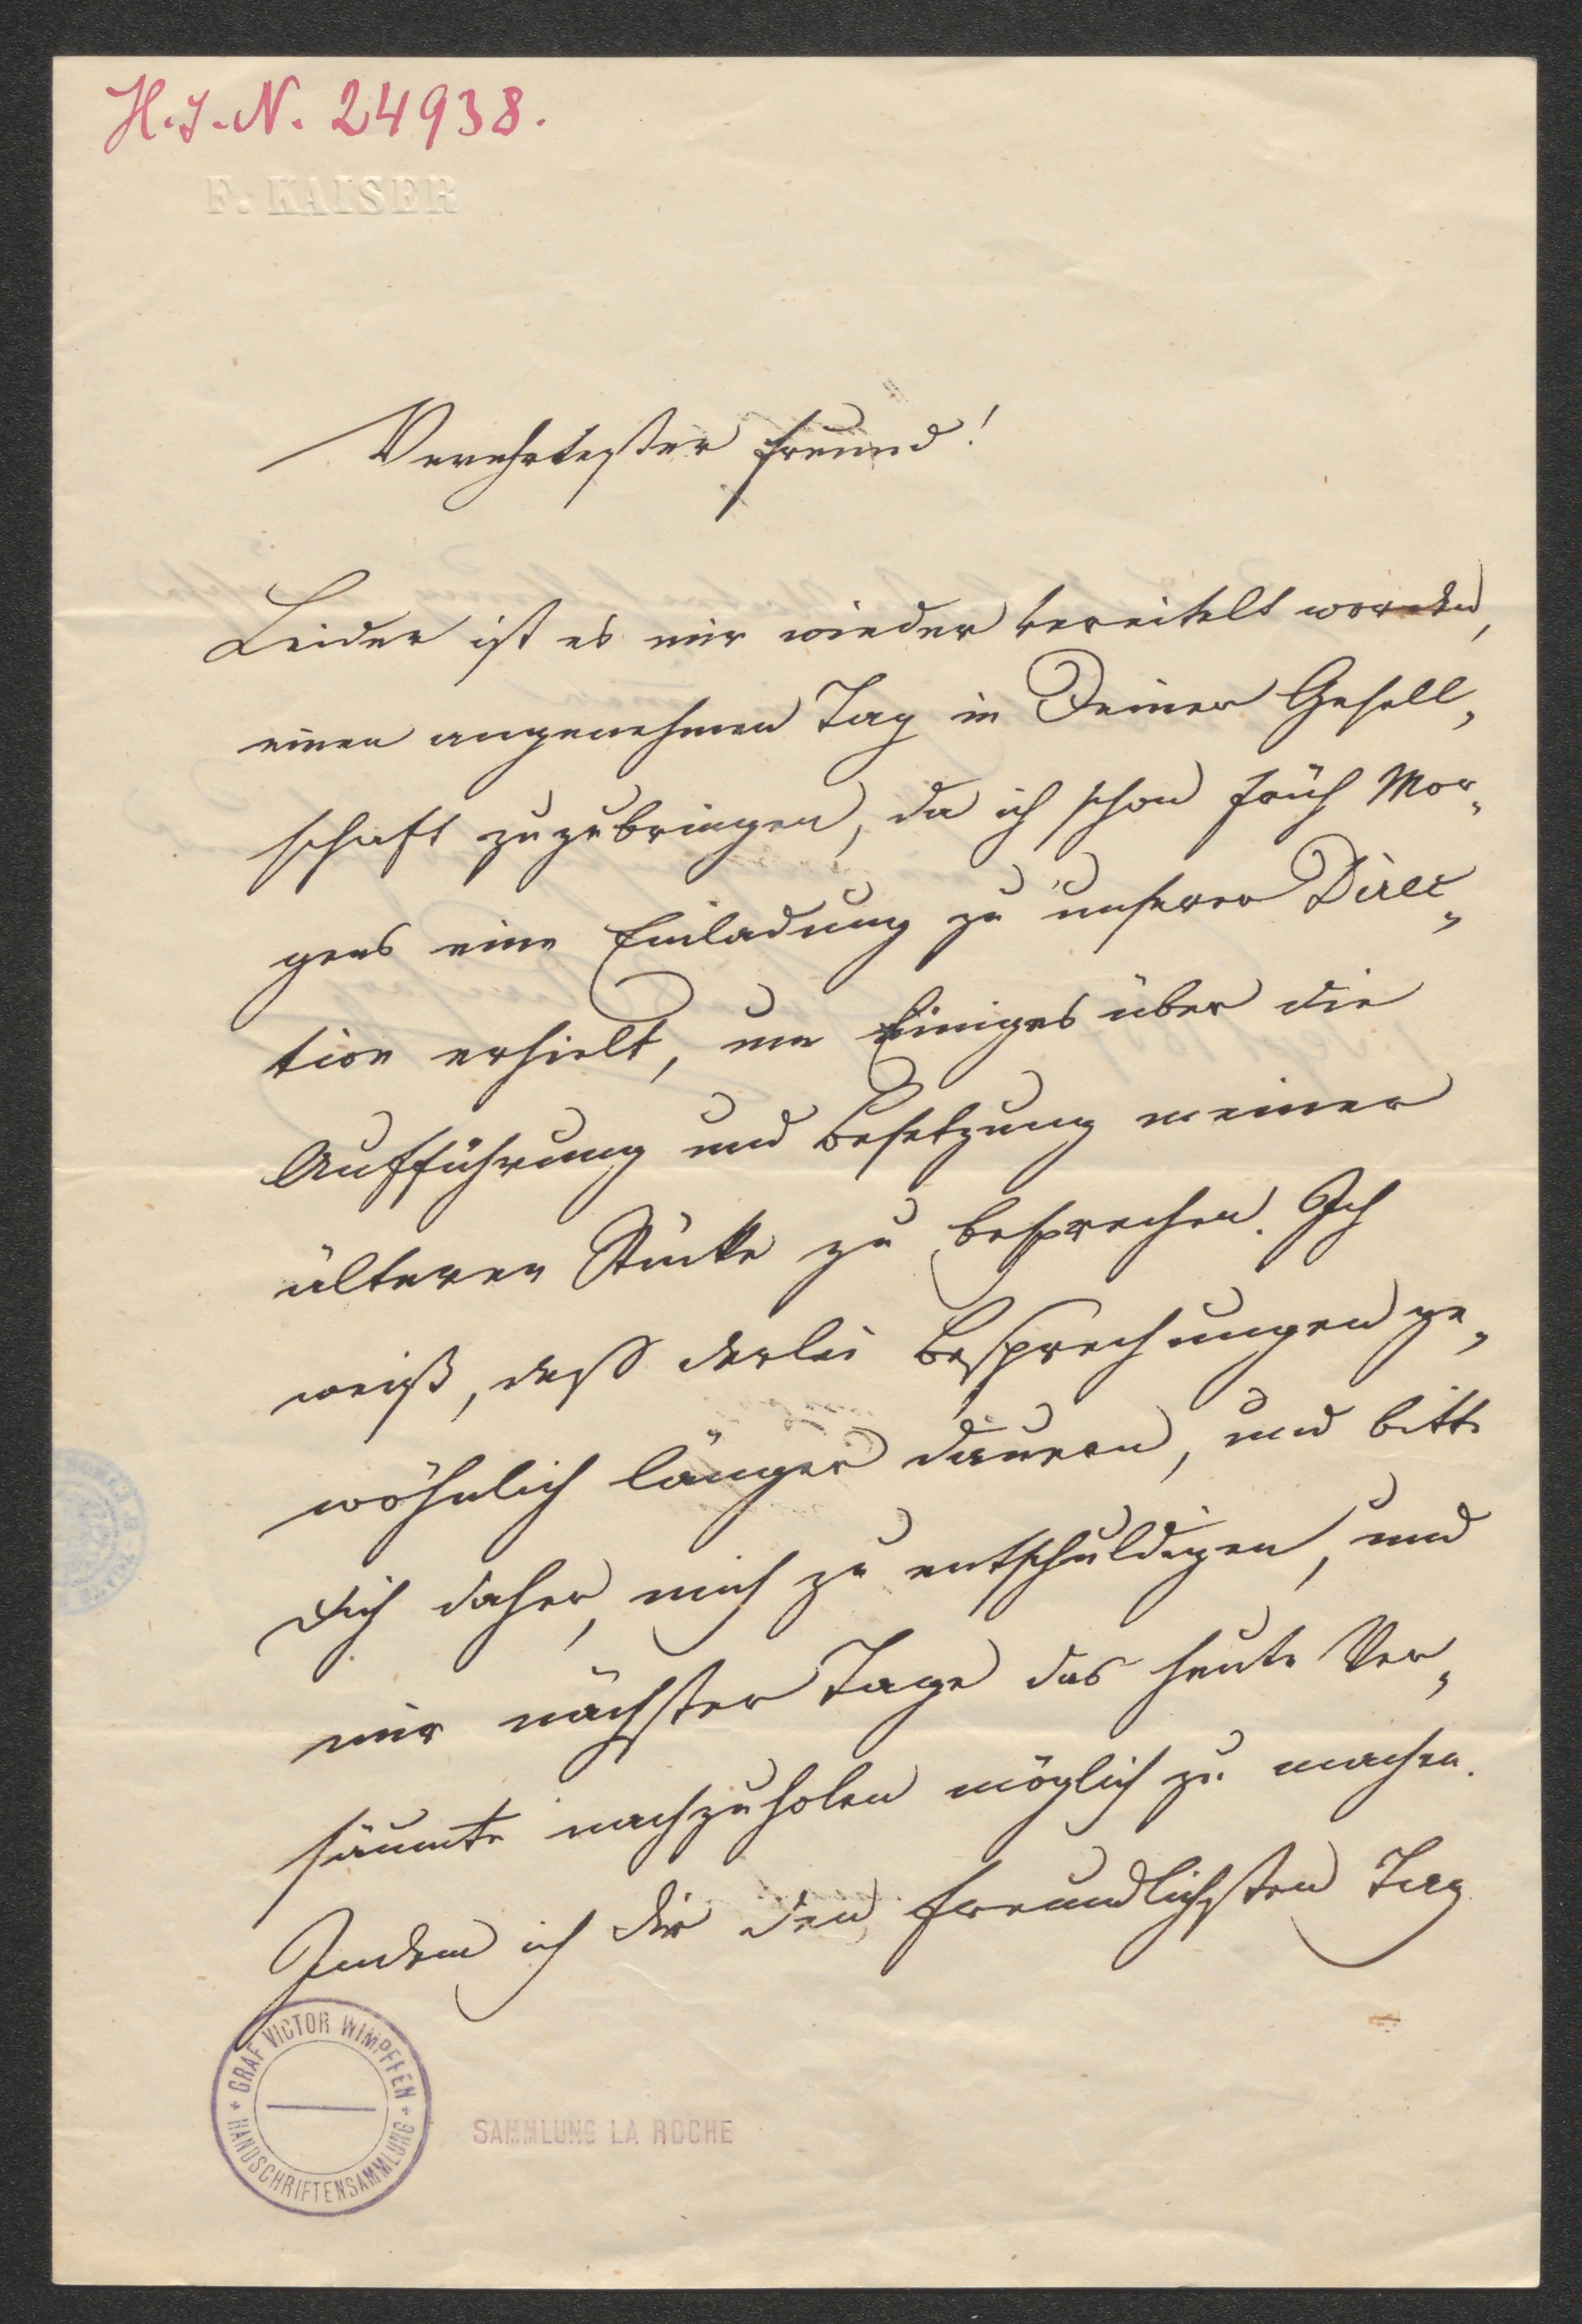 H.I.N. 24938.
F. KAISER
Verehrtester Freund!
Leider ist es mir wieder vereitelt worden,
einen angenehmen Tag in Deiner Gesell„
schaft zuzubringen, da ich schon früh Mor„
gens eine Einladung zu unserer Direc„
tion erhielt, um Einiges über die
Aufführung und Besetzung meiner
älteren Stücke zu besprechen. Ich
weiß, daß derlei Besprechungen ge„
wöhnlich länger dauern, und bitte
Dich daher, mich zu entschuldigen, und
mir nächster Tage das heute Ver„
säumte nachzuholen möglich zu machen.
Indem ich Dir den freundlichsten Tag
GRAF VICTOR WIMPFFEN
HANDSCHRIFTENSAMMLUNG
SAMMLUNG LA ROCHE